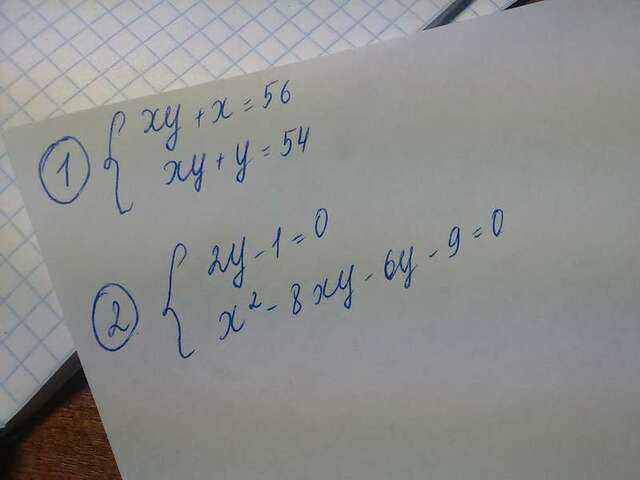 1 xy + x = 56
xy + y = 54
2 2y - 1 = 0
x² - 8xy - 6y - 9 = 0